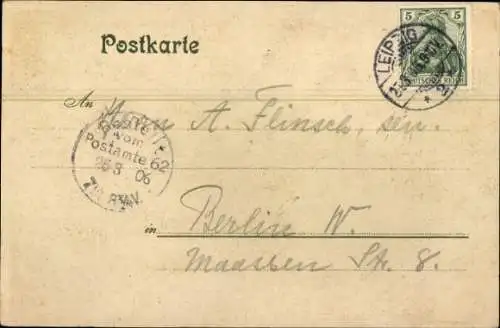 Postkarte
5 5
DEUTSCHES REICH
LEIPZIG
An Herrn A. Flinsch, sen.
Bestellt
vom
Postamte 62
26.3 06
7¼-8¼V.
in Berlin W.
Maassen Str. 8.